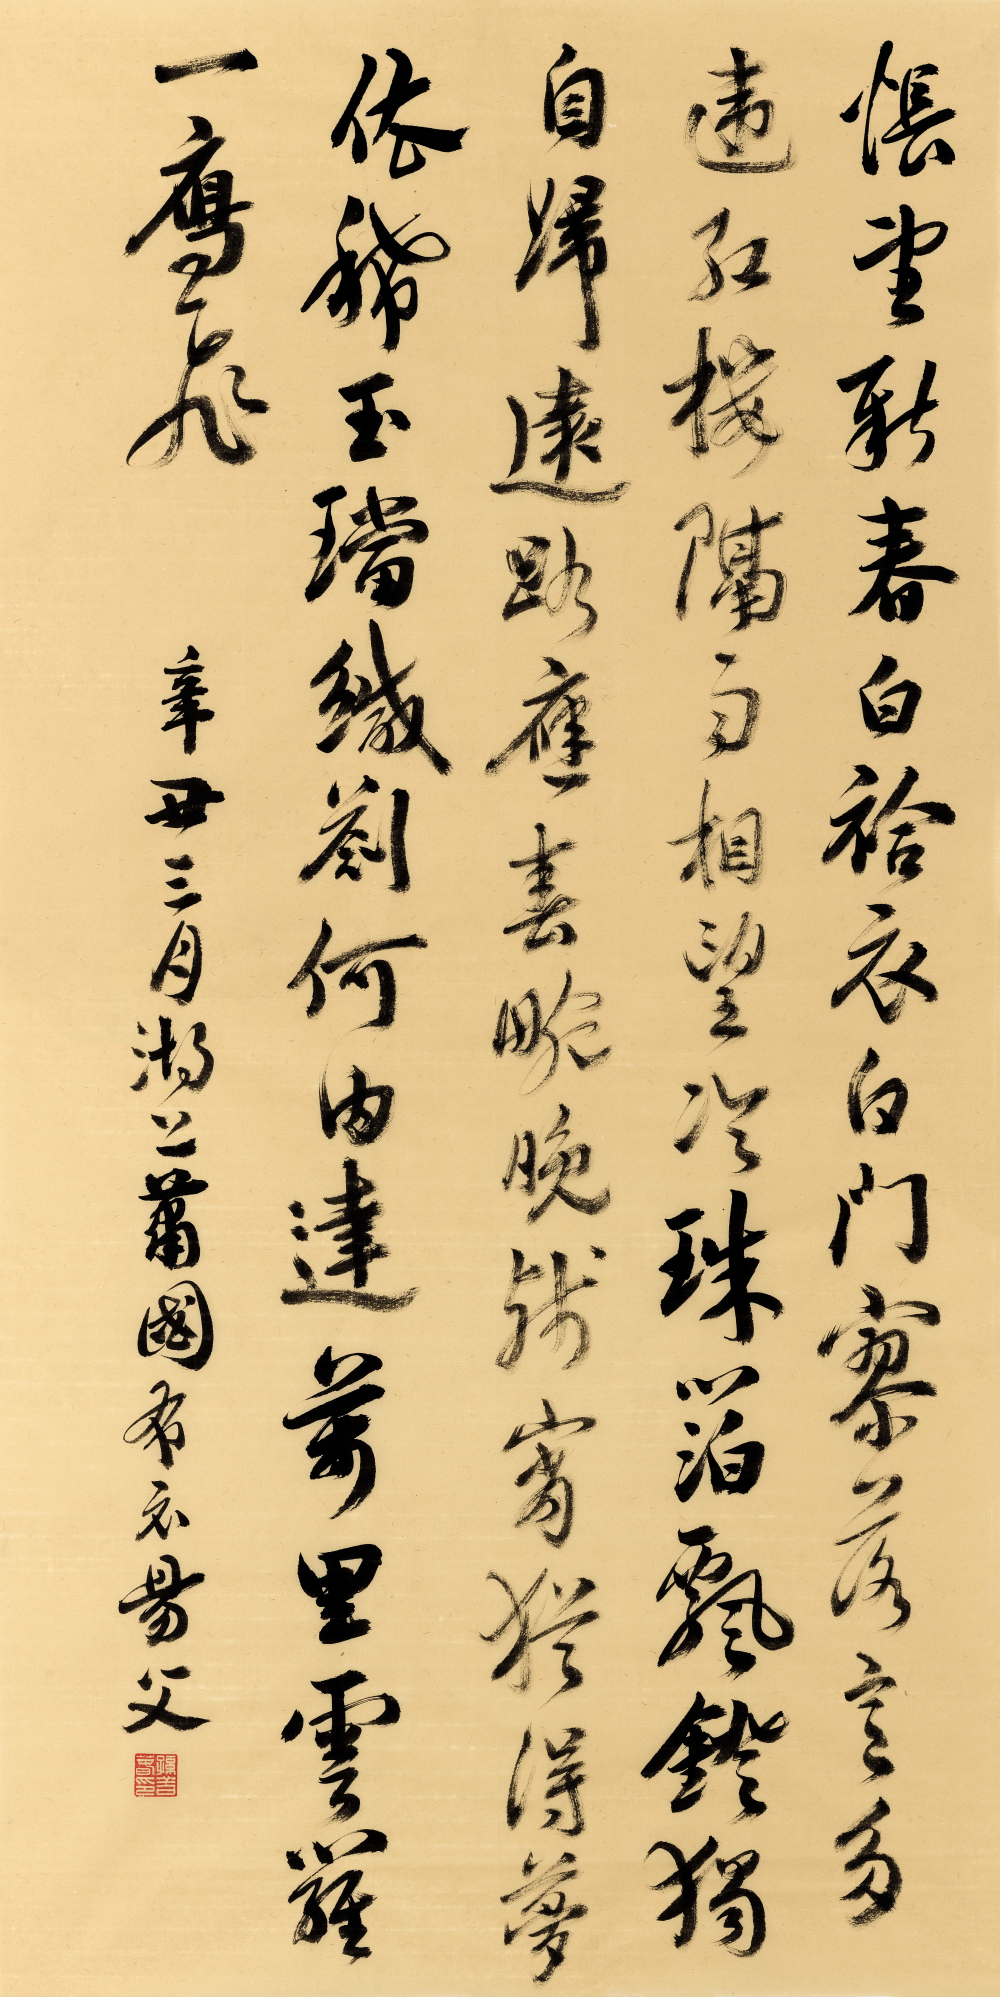 悵新春白袷衣白门寥落意多
違紅樓隔雨相望冷珠箔飄鐙獨
自歸遠路應春晼晚殘宵猶得夢
依稀玉璫緘劄何由達萬里雲羅
一鴈飛
辛丑三月湖上蕭國布衣易父